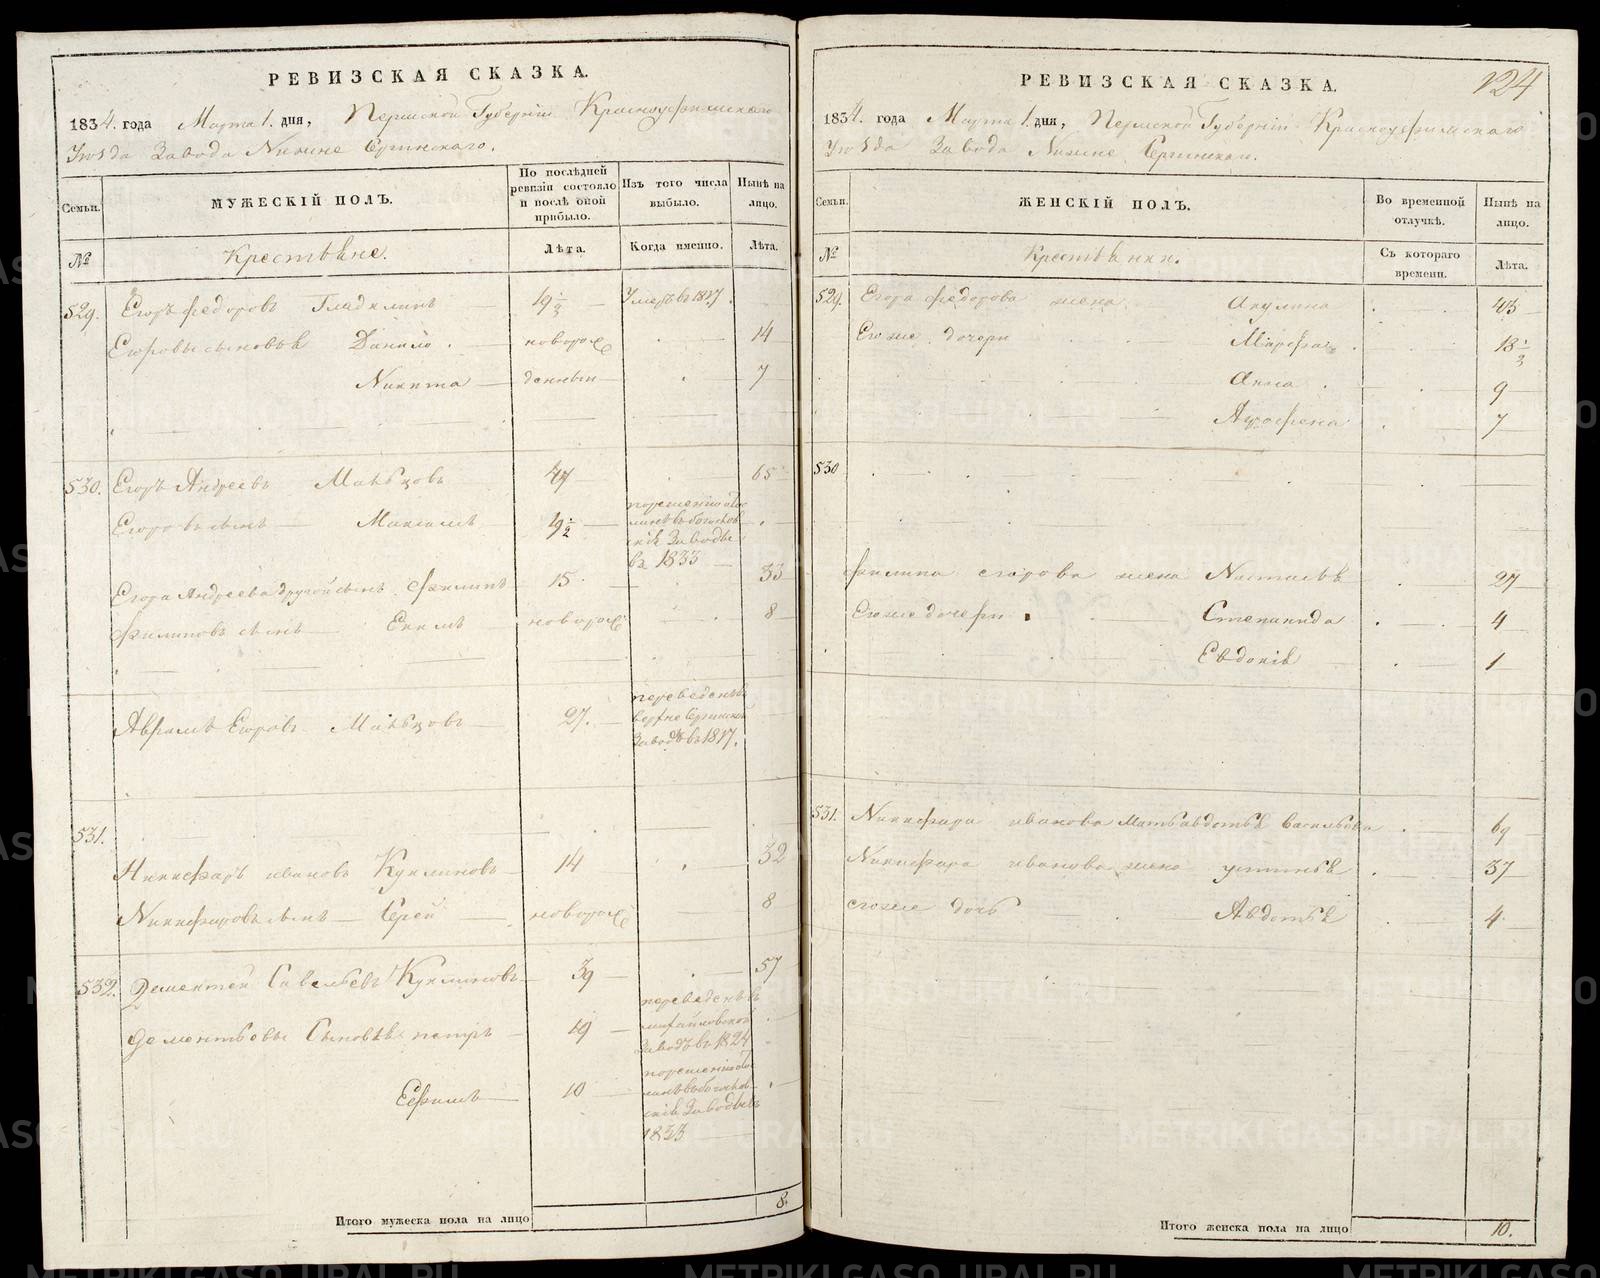 РЕВИЗСКАЯ СКАЗКА.
1834. года Марта 1. дня, Пермской Губерніи Красноуфимскаго
Уѣзда Завода Нижне Сергинскаго.
Семьи.
МУЖЕСКІЙ ПОЛЪ.
По послѣдней ревизіи состояло и послѣ оной прибыло.
Изъ того числа выбыло.
Нынѣ на лицо.
№
Крестьяне.
Лѣта.
Когда именно.
Лѣта.
529. Егоръ Федоровъ Гладкихъ 19 1/2 Умеръ въ 1827.
Егоровы сыновья Данило новорож 14
Никита денныи 7
530. Егоръ Андреевъ 47 65
Егоровъ сынъ Максимъ 19 1/2
въ 1833
Егора Андреева другой сынъ Филипъ 15 33
Филиповъ сынъ Екимъ новорож 8
Аврамъ Егоровъ 27. переведенъ въ верхне Сергинской Заводъ въ 1817.
531.
Никифаръ Ивановъ Куклиновъ 14 32
Никифаровъ сынъ Сергей новорож 8
532. Дементей Савельевъ Куклиновъ 39 57
Дементьевы Сыновья петръ 19 переведенъ въ михайловской Заводъ въ 1824
Ефимъ 10
1833
Итого мужеска пола на лицо 8.
РЕВИЗСКАЯ СКАЗКА.
124
1834. года Марта 1. дня, Пермской Губерніи Красноуфимскаго
Уѣзда Завода Нижне Сергинскаго.
Семьи.
ЖЕНСКІЙ ПОЛЪ.
Во временной отлучкѣ.
Нынѣ на лицо.
№
Крестьянки.
Съ котораго времени.
Лѣта.
529. Егора Федорова жена Акулина 43
Егоже дочери Марфа 18 1/2
Анна 9
Аграфена 7
530
Филипа егорова жена Настасья 27
Егоже дочери Степанида 4
Евдокія 1
531. Никифара иванова Мать авдотья Васильева 69
Никифара иванова жена устинья 37
егоже дочь Авдотья 4
Итого женска пола на лицо 10.
METRIKI.GASO-URAL.RU